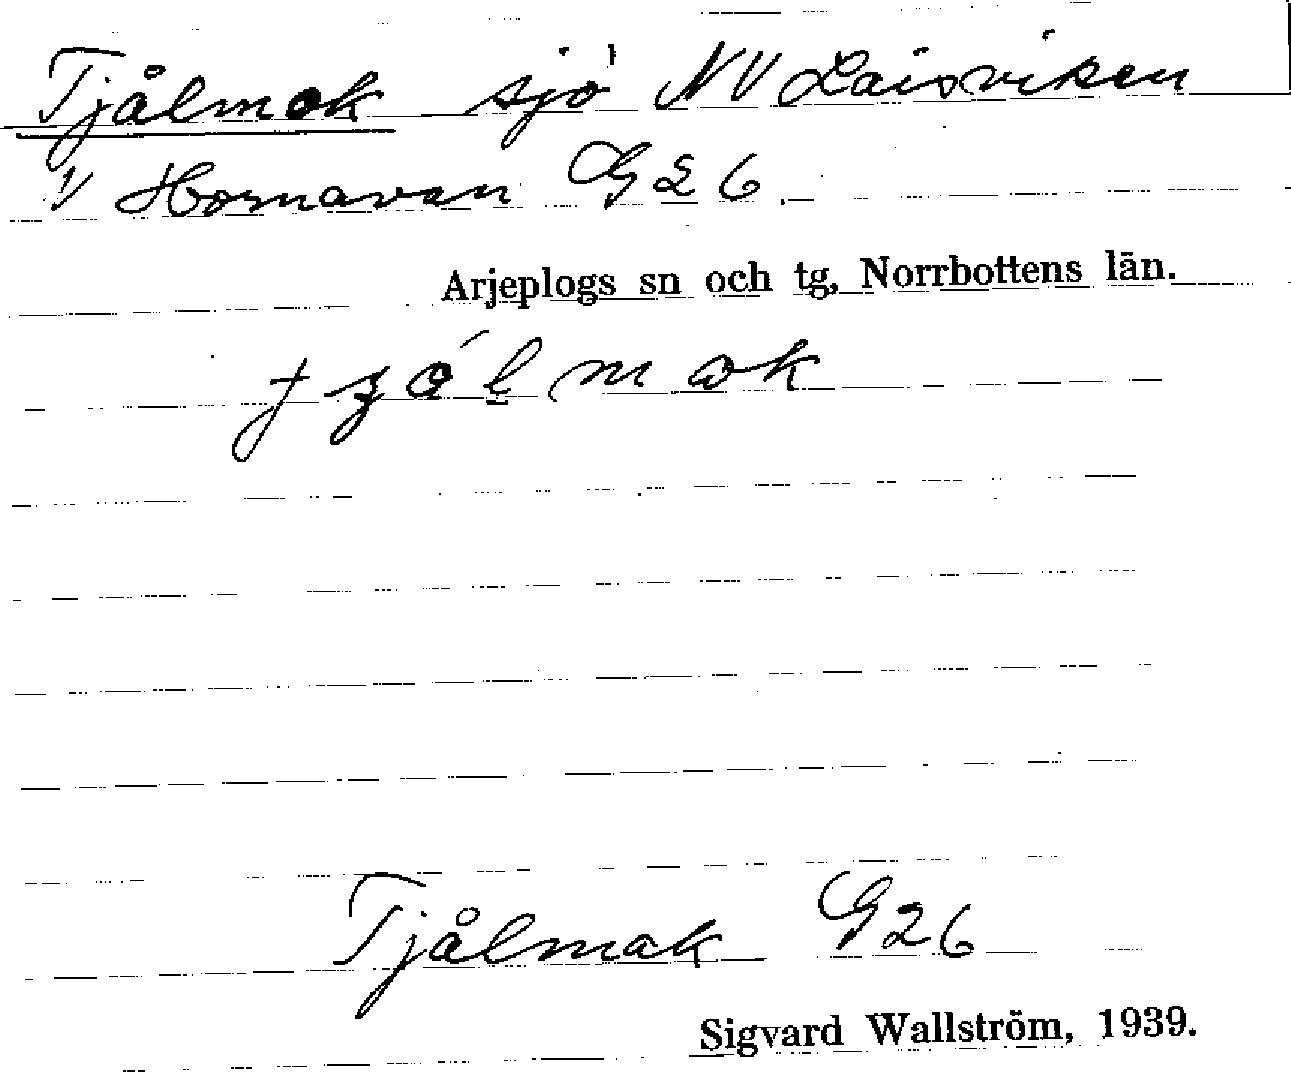 Tjålmok sjö NV Laisviken
i/ Hornavan G26
Arjeplogs sn och tg, Norrbottens län.
Tjålmak G26
Sigvard Wallström, 1939.